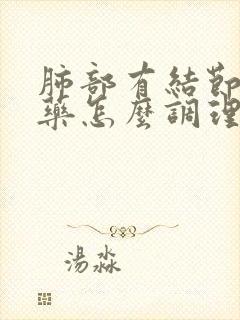 肺部有結節
藥怎麼調理
湯淼